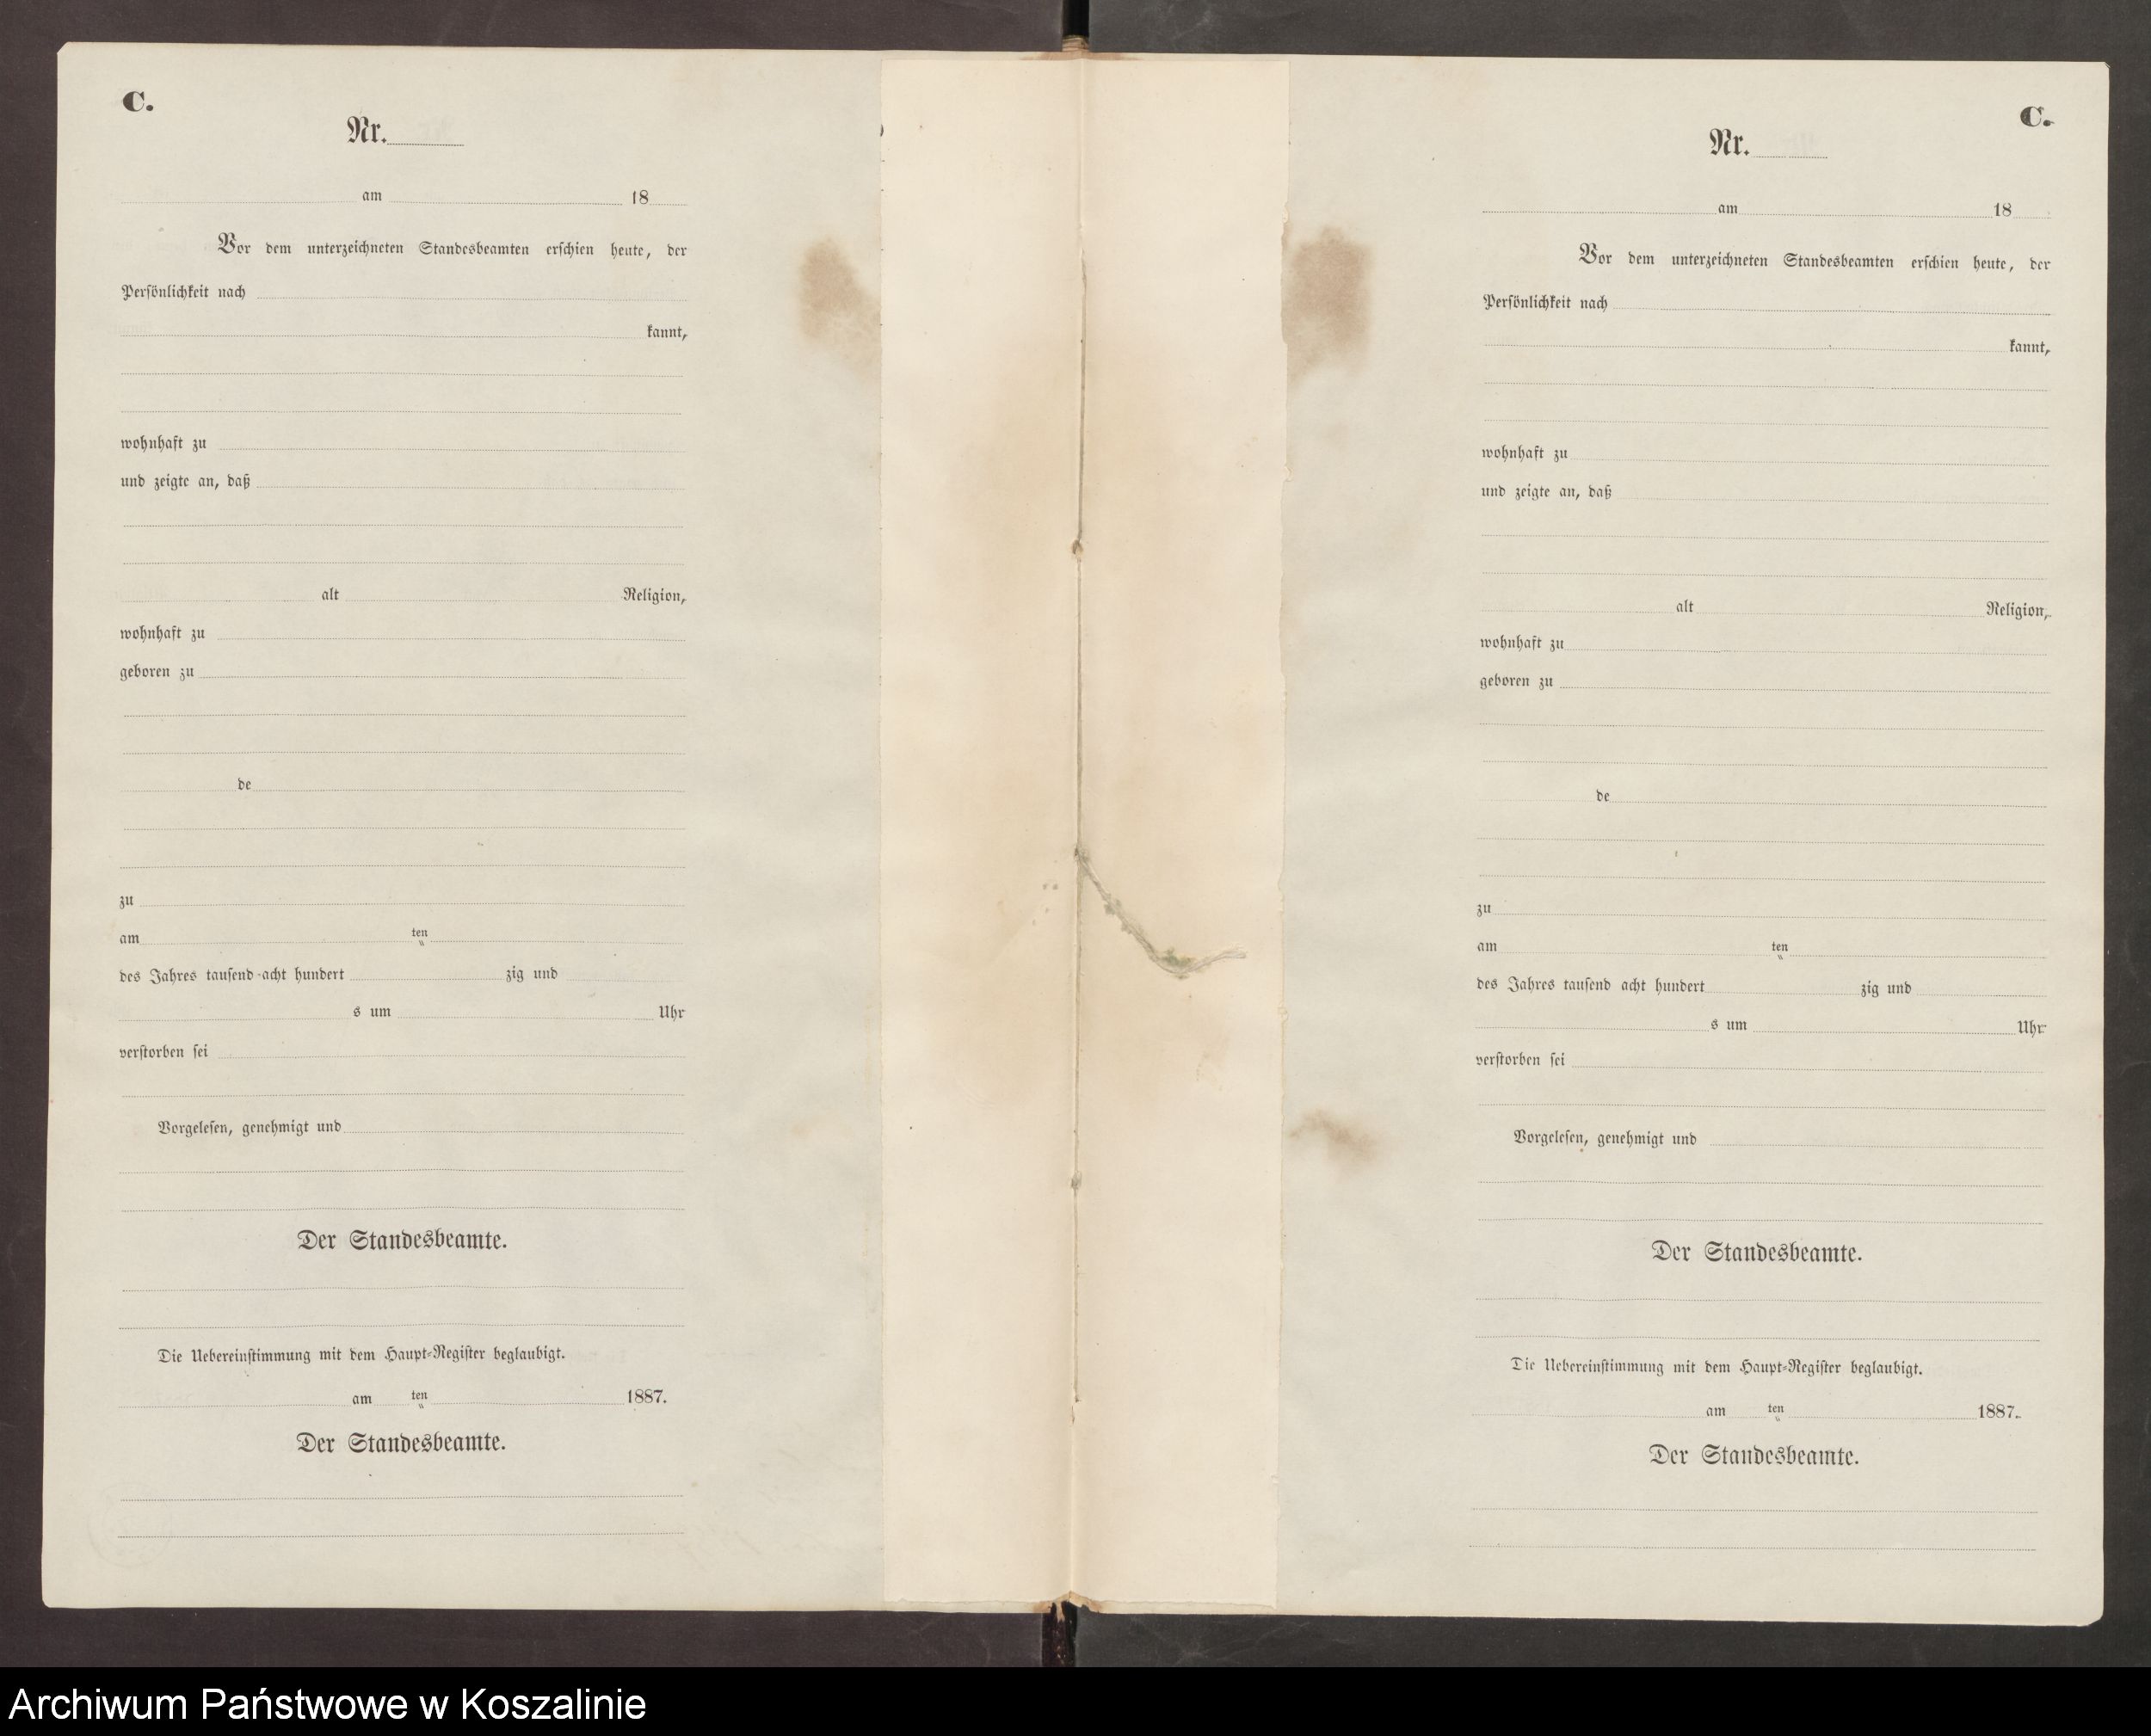 C.
Nr.
am 18
Vor dem unterzeichneten Standesbeamten erschien heute, der
Persönlichkeit nach
kannt,
wohnhaft zu
und zeigte an, daß
alt Religion,
wohnhaft zu
geboren zu
de
zu
am ten
des Jahres tausend acht hundert zig und
s um Uhr
verstorben sei
Vorgelesen, genehmigt und
Der Standesbeamte.
Die Uebereinstimmung mit dem Haupt-Register beglaubigt.
am ten 1887.
Der Standesbeamte.
C.
Nr.
am 18
Vor dem unterzeichneten Standesbeamten erschien heute, der
Persönlichkeit nach
kannt,
wohnhaft zu
und zeigte an, daß
alt Religion,
wohnhaft zu
geboren zu
de
zu
am ten
des Jahres tausend acht hundert zig und
s um Uhr
verstorben sei
Vorgelesen, genehmigt und
Der Standesbeamte.
Die Uebereinstimmung mit dem Haupt-Register beglaubigt.
am ten 1887.
Der Standesbeamte.
Archiwum Państwowe w Koszalinie